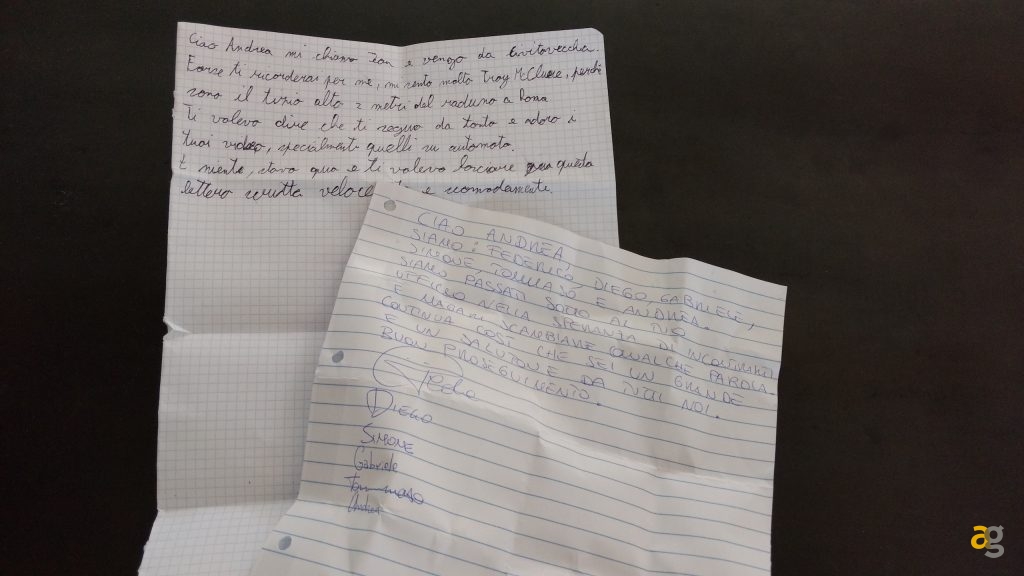 Ciao Andrea mi chiamo Jean e vengo da Civitavecchia.
Forse ti ricorderai per me, mi sento molto Troy McClure, perché
sono il tizio alto 2 metri del raduno a Roma
Ti volevo dire che ti seguo da tanto e adoro i
tuoi video, specialmente quelli su automata.
E niente, stavo qua e ti volevo lasciare questa
lettera scritta e scomodamente.
CIAO ANDREA,
SIAMO: FEDERICO, DIEGO, GABRIELE,
SIMONE, TOMMASO E ANDREA.
SIAMO PASSATI SOTTO AL TUO
UFFICIO NELLA SPERANZA DI INCONTRARTI
E MAGARI SCAMBIARE QUALCHE PAROLA.
CONTINUA COSÌ CHE SEI UN GRANDE
E UN SALUTONE DA TUTTI NOI.
BUON PROSEGUIMENTO.
DIEGO
SIMONE
Gabriele
Tommaso
Andrea
ag